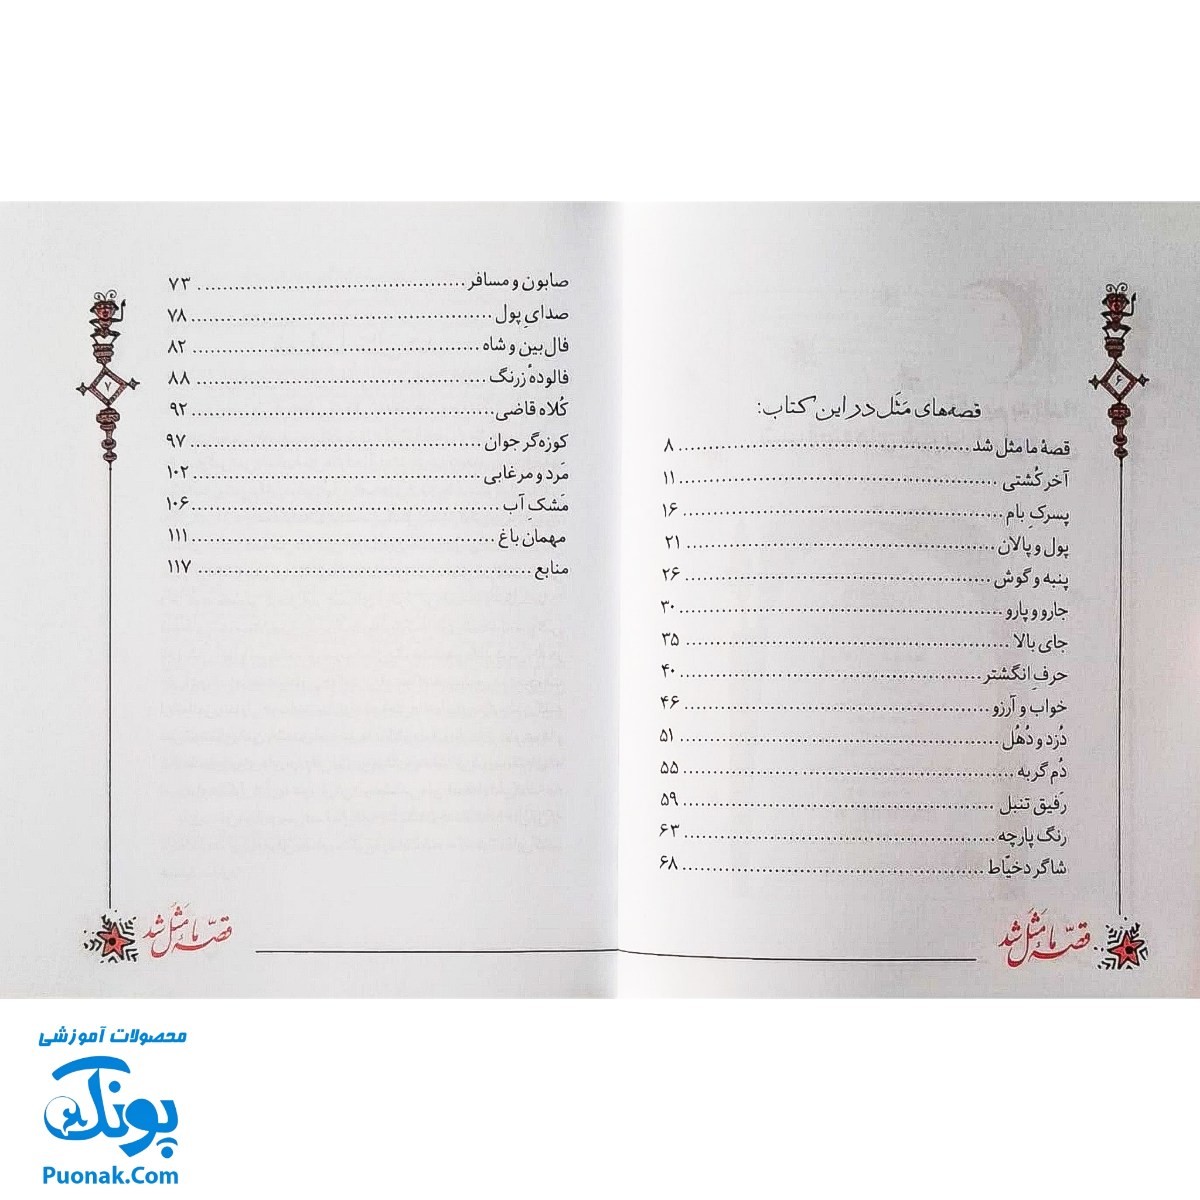 ۶
قصه‌های مَثَل در این کتاب:
قصهٔ ما مثل شد ........ ۸
آخر کُشتی ........ ۱۱
پسرکِ بام ........ ۱۶
پول و پالان ........ ۲۱
پنبه و گوش ........ ۲۶
جارو و پارو ........ ۳۰
جای بالا ........ ۳۵
حرفِ انگشتر ........ ۴۰
خواب و آرزو ........ ۴۶
دُزد و دُهُل ........ ۵۱
دُم گربه ........ ۵۵
رَفیق تنبل ........ ۵۹
رنگ پارچه ........ ۶۳
شاگرد خیّاط ........ ۶۸
قصّهٔ ما مَثَل شد
۷
صابون و مسافر ........ ۷۳
صدایِ پول ........ ۷۸
فال‌بین و شاه ........ ۸۲
فالودهٔ زرنگ ........ ۸۸
کُلاه قاضی ........ ۹۲
کوزه‌گر جوان ........ ۹۷
مَرد و مرغابی ........ ۱۰۲
مَشکِ آب ........ ۱۰۶
مهمان باغ ........ ۱۱۱
منابع ........ ۱۱۷
قصّهٔ ما مَثَل شد
محصولات آموزشی
پونک
Puonak.Com